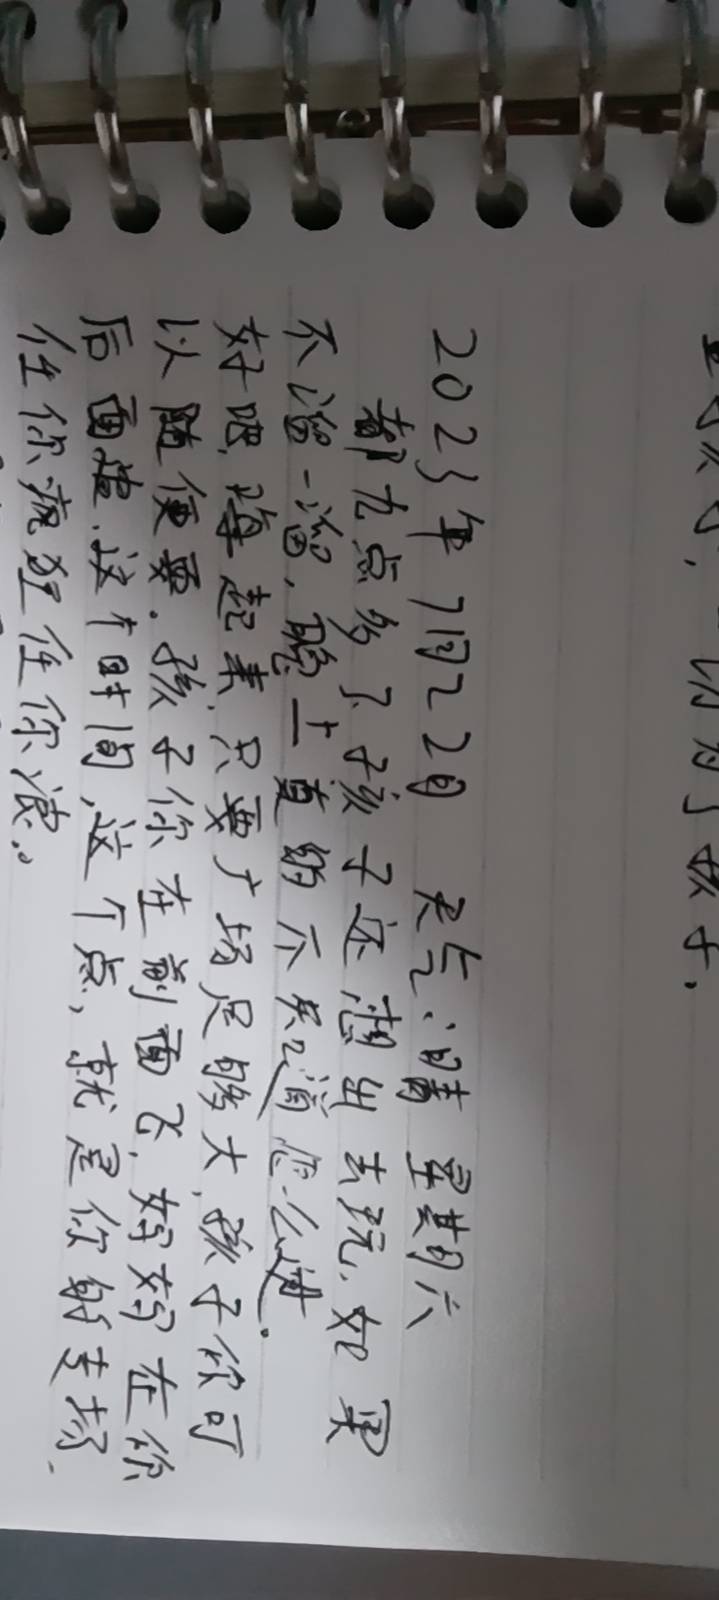 2023年7月22日 天气:晴 星期六
都九点多了孩子还想出去玩,如果
不溜一溜,晚上真的不知道怎么过.
好吧,嗨起来,只要广场足够大,孩子你可
以随便耍.孩子你在前面飞,妈妈在你
后面追.这个时间,这个点,就是你的专场.
任你疯狂任你浪。